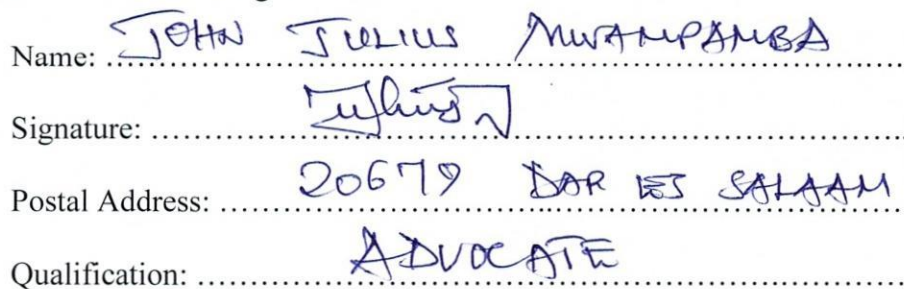 Name: JOHN JULIUS MWAMPAMBA
Signature:
Postal Address: 20679 DAR ES SALAAM
Qualification: ADVOCATE